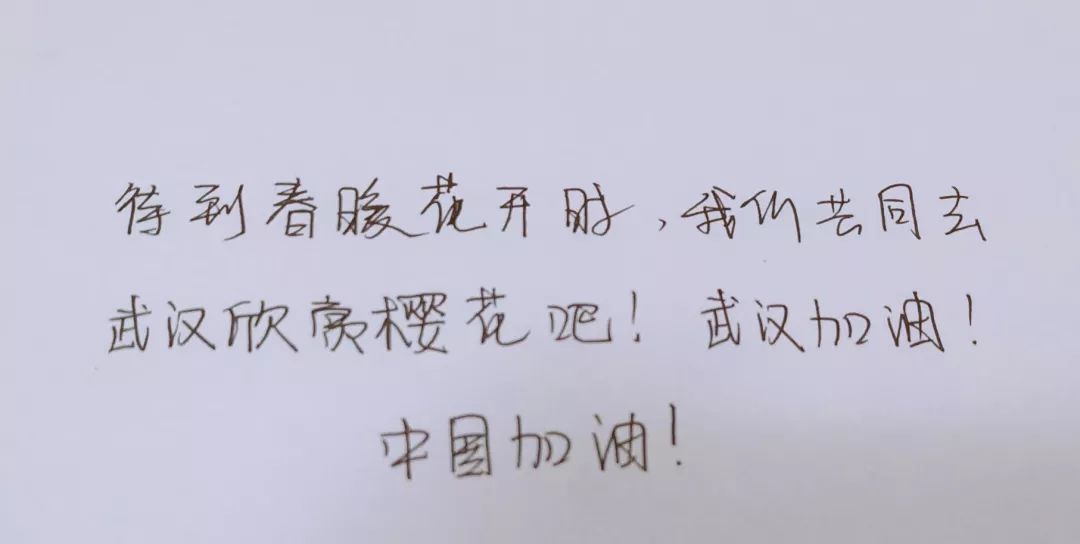 待到春暖花开时，我们共同去
武汉欣赏樱花吧！ 武汉加油！
中国加油！